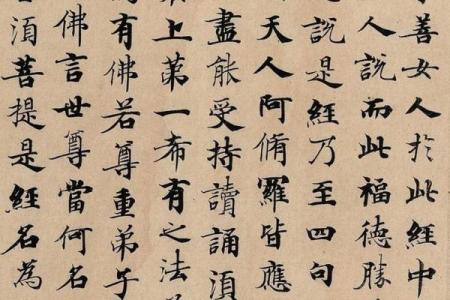 善女人於此經中
人說而此福德勝
說是經乃至四句
天人阿脩羅皆應
盡能受持讀誦須
上第一希有之法
為有佛若尊重弟子
佛言世尊當何名
須菩提是經名為